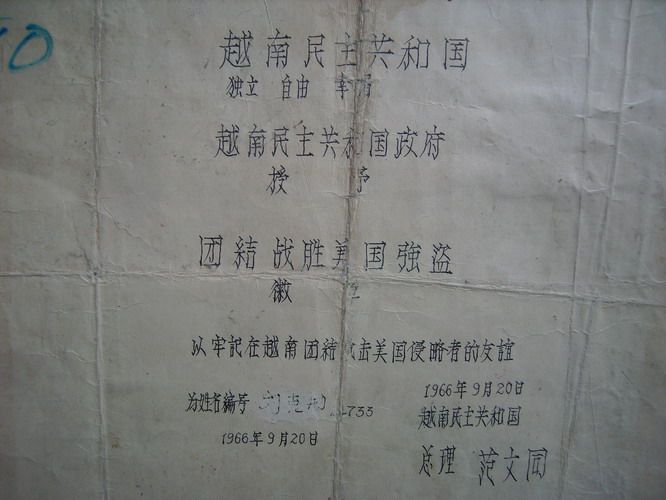 50
越南民主共和国
独立 自由 幸福
越南民主共和国政府
授 予
团結战胜美国強盗
徽 章
以牢記在越南团結 击美国侵略者的友誼
为姓名編号 733
1966年9月20日
1966年9月20日
越南民主共和国
总理 范文同